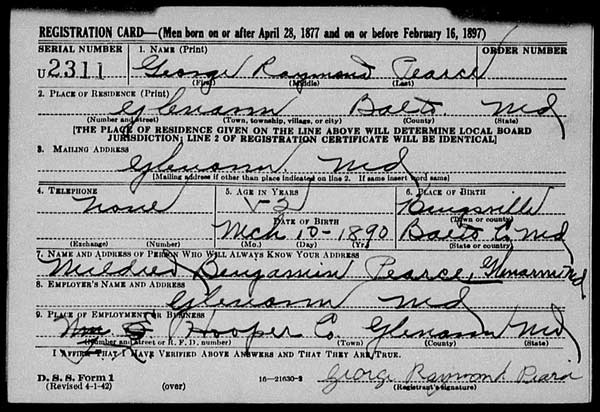 REGISTRATION CARD—(Men born on or after April 28, 1877 and on or before February 16, 1897)
SERIAL NUMBER 1. NAME (Print) ORDER NUMBER
U2311 George Raymond Pearce
(First) (Middle) (Last)
2. PLACE OF RESIDENCE (Print)
Glenarm Balto. Md
(Number and street) (Town, township, village, or city) (County) (State)
[THE PLACE OF RESIDENCE GIVEN ON THE LINE ABOVE WILL DETERMINE LOCAL BOARD
JURISDICTION; LINE 2 OF REGISTRATION CERTIFICATE WILL BE IDENTICAL]
3. MAILING ADDRESS
Glenarm. Md
[Mailing address if other than place indicated on line 2. If same insert word same]
4. TELEPHONE 5. AGE IN YEARS 6. PLACE OF BIRTH
None 52 Kingsville
DATE OF BIRTH (Town or county)
Mch 10-1890 Balto C. Md
(Exchange) (Number) (Mo.) (Day) (Yr.) (State or country)
7. NAME AND ADDRESS OF PERSON WHO WILL ALWAYS KNOW YOUR ADDRESS
Mildred Benjamin Pearce, Glenarm Md
8. EMPLOYER'S NAME AND ADDRESS
Glenarm Md
9. PLACE OF EMPLOYMENT OR BUSINESS
Wm E. Hooper Co Glenarm Md
(Number and street or R. F. D. number) (Town) (County) (State)
I AFFIRM THAT I HAVE VERIFIED ABOVE ANSWERS AND THAT THEY ARE TRUE.
D. S. S. Form 1 George Raymond Pearce
(Revised 4-1-42) (over) 16—21630-2 (Registrant's signature)